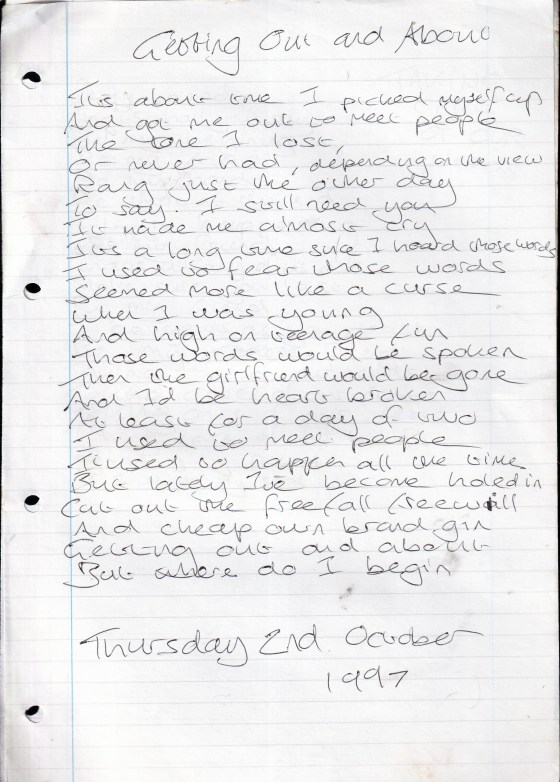 Getting Out and About
It's about time I picked myself up
And got me out to meet people
The love I lost,
Or never had, depending on the view
Rang just the other day
To say. I still need you
It made me almost cry
It's a long time since I heard those words
I used to fear those words
Seemed more like a curse
When I was young
And high on teenage fun
Those words would be spoken
Then the girlfriend would be gone
And I'd be heart broken
At least for a day or two
I used to meet people
It used to happen all the time
But lately I've become holed in
Cut out the freefall freewill
And cheap own brand gin
Getting out and about
But where do I begin
Thursday 2nd October
1997